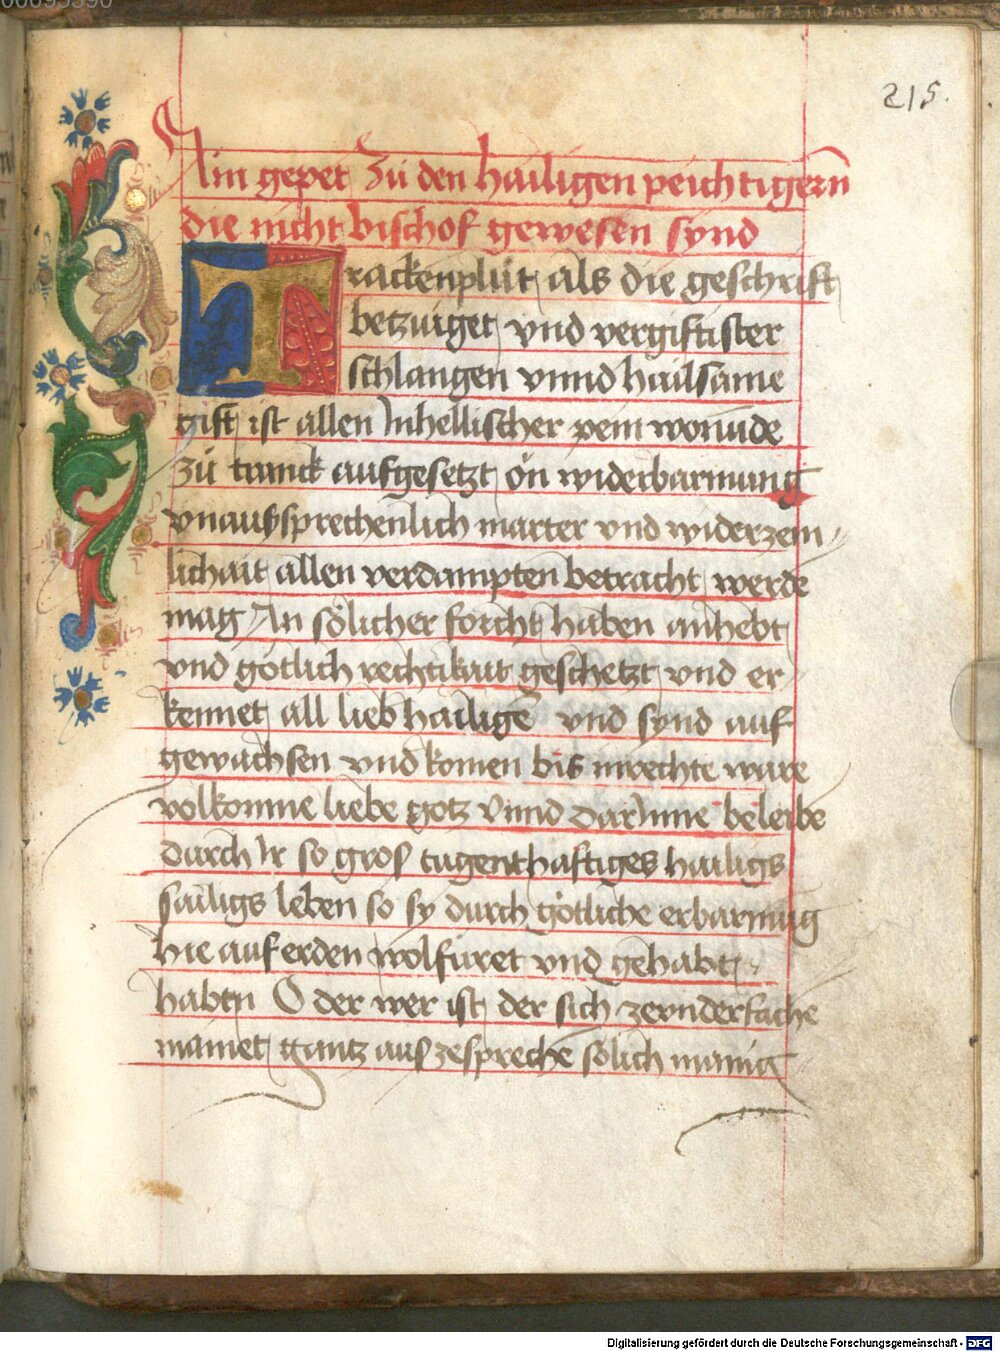 215.
Ain gepet zu den hailigen peichtigern
die nicht bischof gewesen synd
Trackenplut als die geschrift
betzuiget vnd vergiftister
schlangen vnnd hailsame
gift ist allen Inhellischer pein wonnde
zu tranck aufgesetzt on widerbarmung
vnaussprechenlich marter vnd widerzem
lichait allen verdampten betracht werde
mag An sölicher forcht haben anhebt
vnd götlich rechtikait geschetzt vnd er
kennet all lieb hailige vnd synd auf
gewachsen vnd komen bis inrechte ware
volkomne liebe gotz vnnd darInne beleibe
durch Ir so gros tugenthaftiges hailigs
säiligs leben so sy durch götliche erbarmug
hie auf erden wolfüret vnd gehabt
habtn O der wer ist der sich
mainet gantz aus zespreche sölich manig
Digitalisierung gefördert durch die Deutsche Forschungsgemeinschaft - DFG